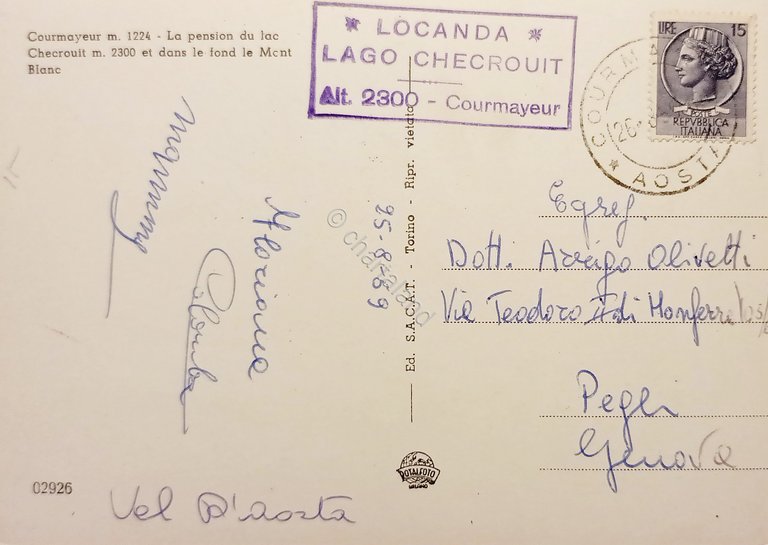 Courmayeur m. 1224 - La pension du lac
Checrouit m. 2300 et dans le fond le Mont
Blanc
* LOCANDA *
LAGO CHECROUIT
Alt. 2300 - Courmayeur
LIRE 15
POSTE
REPVBBLICA
ITALIANA
COURMA
26-
* AOSTA
Egreg.
Dott. Arrigo Olivetti
Via Teodoro II di Monferrato
Pegli
Genova
25-8-59
Mammy
Floriana
Colomba
Ed. S.A.C.A.T. - Torino - Ripr. vietata
© chartaland
ROTALFOTO
MILANO
02926
Val D'aosta